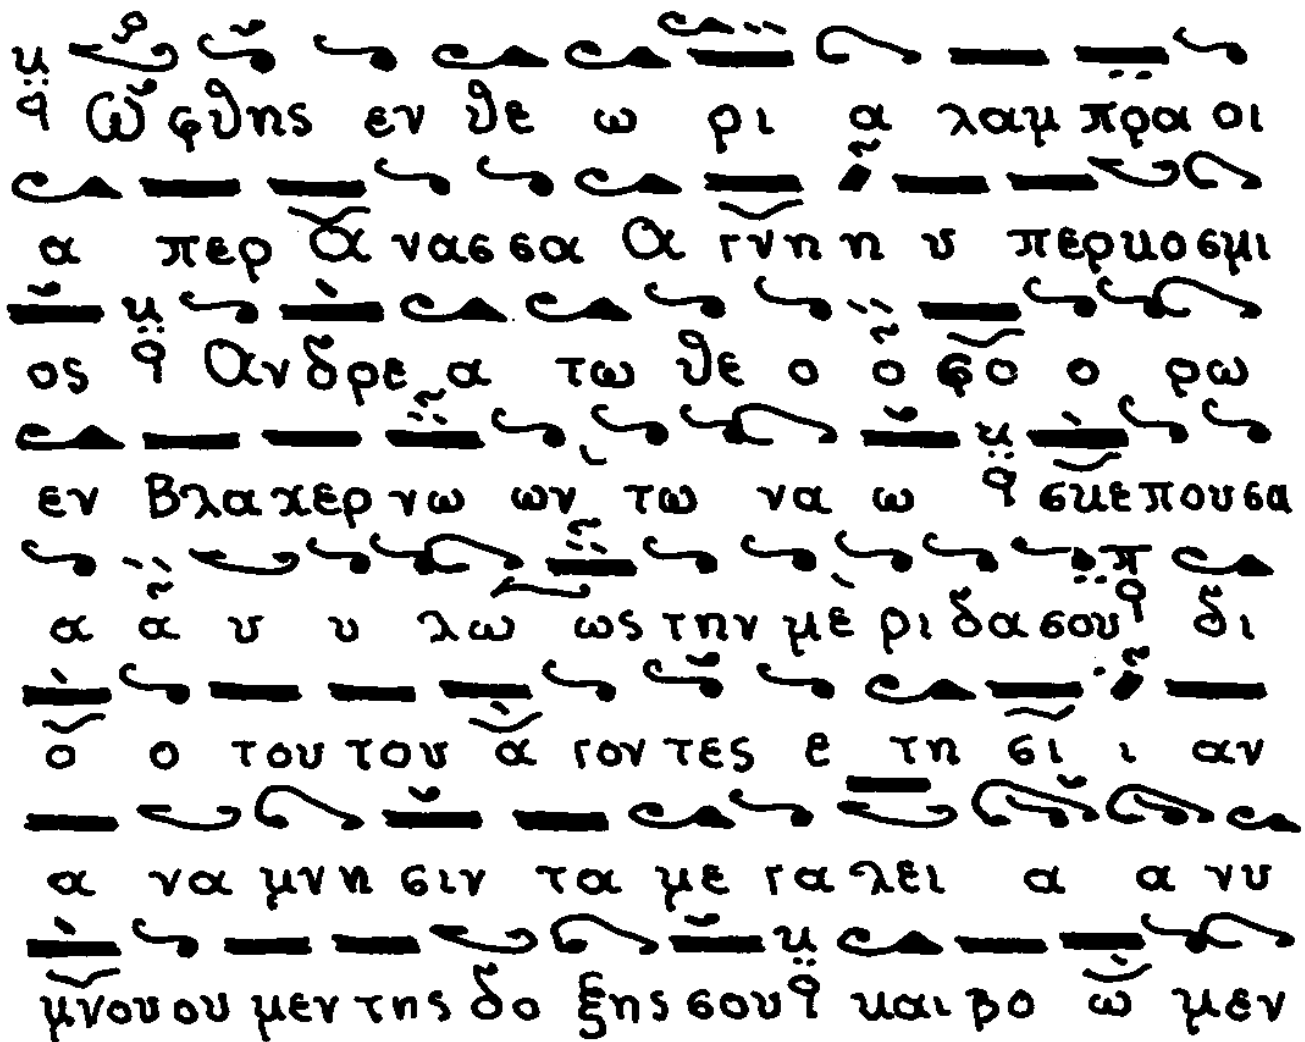 Ω φθης εν θε ω ρι α λαμ πρα οι
α περ Α νασ σα Α γνη η υ περκοσμι
ος Αν δρε α τω θε ο ο φο ο ρω
εν Βλα χερ νω ων τω να ω σκεπουσα
α α υ υ λω ως την με ρι δα σου δι
ο ο του του α γον τες ε τη σι ι αν
α να μνη σιν τα με γα λει α α νυ
μνου ου μεν της δο ξης σου και βο ω μεν